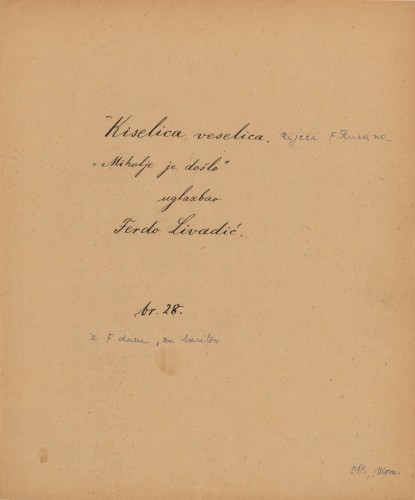 Kiselica, veselica. Riječi F. Rusana
„Miholje je došlo"
uglazbao
Ferdo Livadić.
br. 28.
u F duru, za bariton